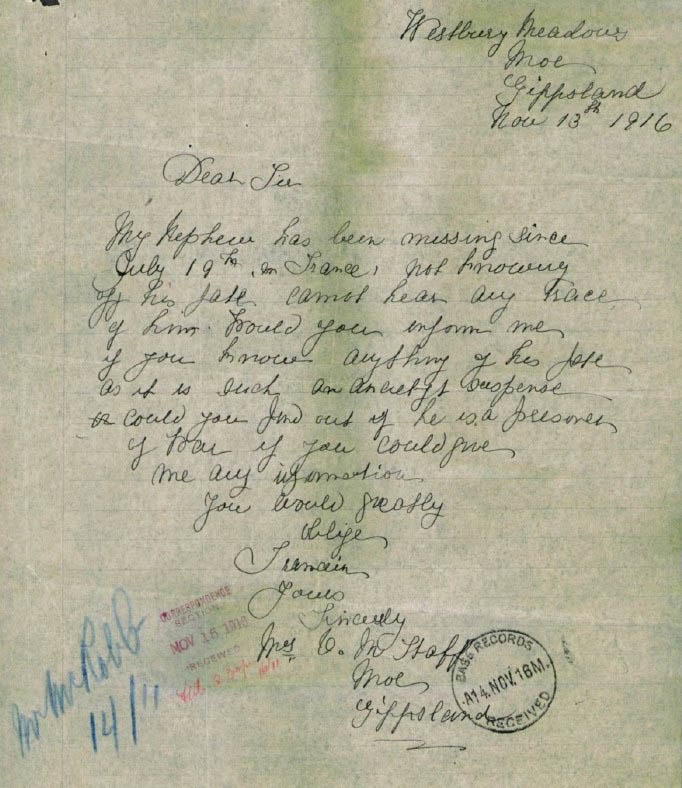 Westbury Meadows
Moe
Gippsland
Nov 13th 1916
Dear Sir
My Nephew has been missing since
July 19th, in France, not knowing
of his fate cannot hear any trace
of him. Would you inform me
if you know anything of his fate
as it is such an anxiety & suspense
could you find out if he is a prisoner
of War if you could give
me any information
You would greatly
oblige
I remain
Yours
Sincerely
Mrs C. M Staff
Moe
Gippsland
CORRESPONDENCE
SECTION
NOV 15 1916
RECEIVED
BASE RECORDS
A14.NOV.16M.
RECEIVED
Mr McRobb
14/11